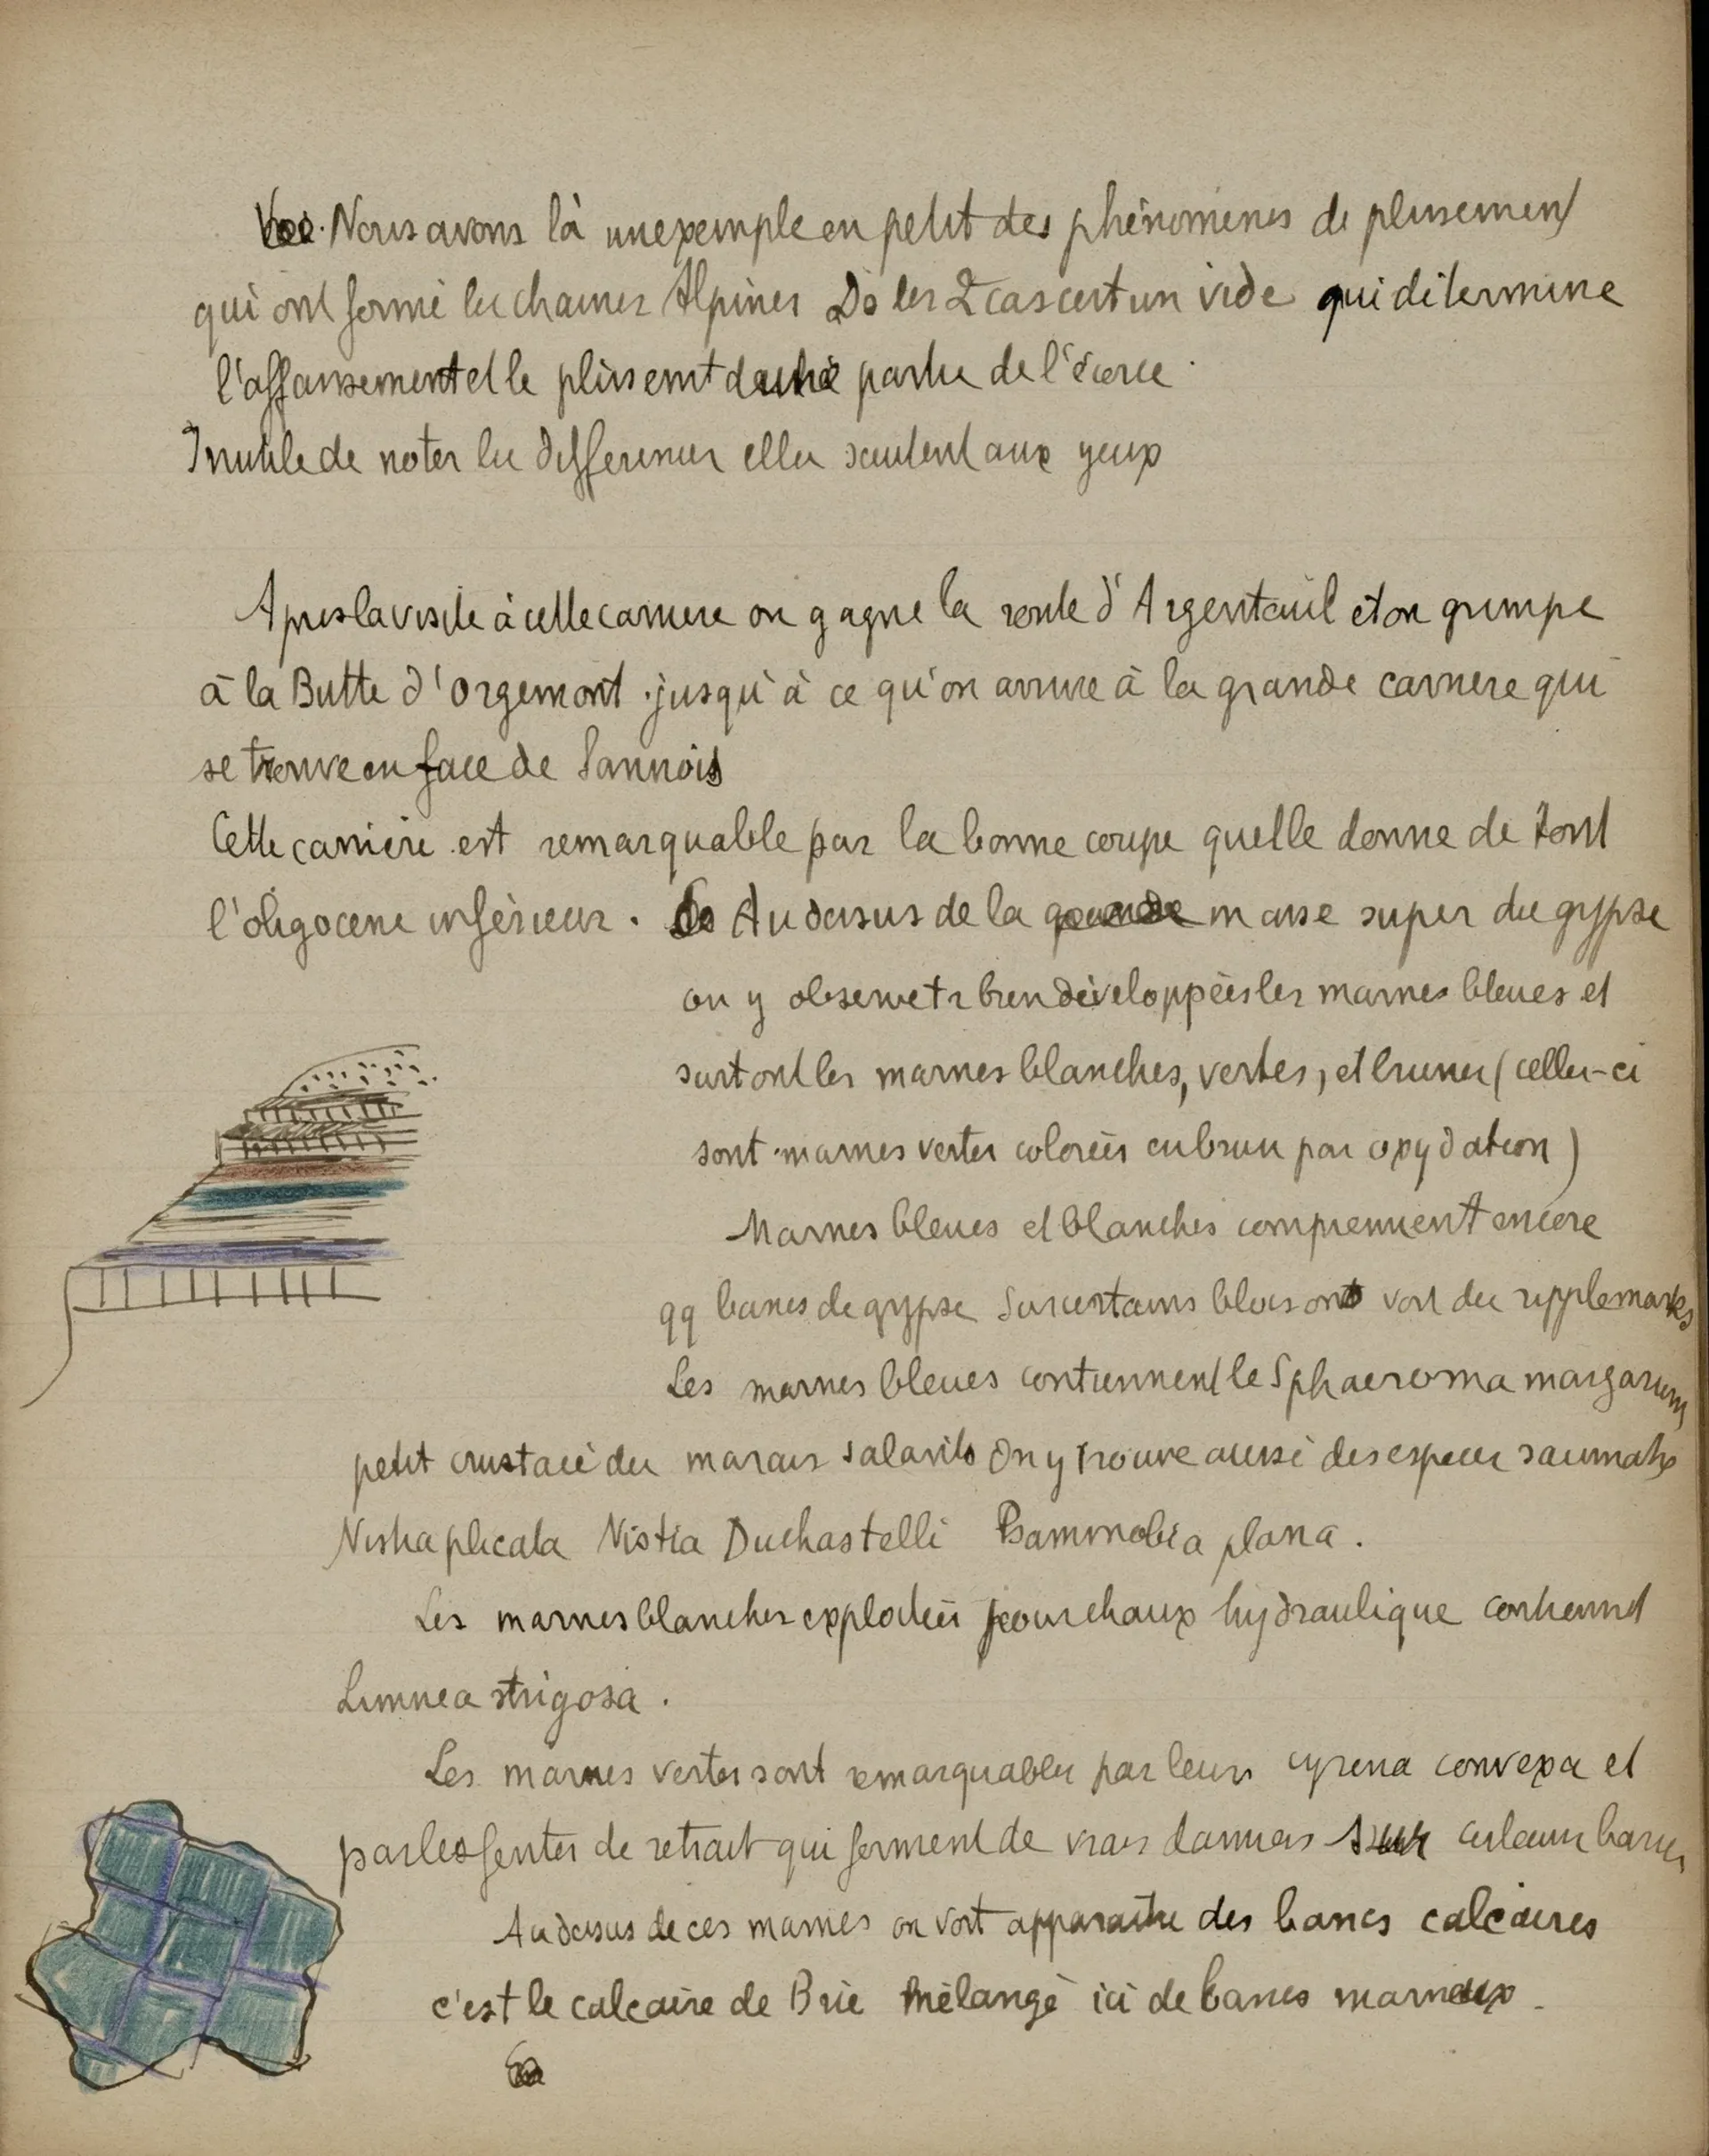 Nous avons là un exemple en petit des phénomènes de plissement
qui ont formé les chaines Alpines Ds les 2 cas cest un vide qui détermine
l'affaissement et le plissemt dune partie de l'écorce.
Inutile de noter les differences elles sautent aux yeux
Apres la visite à cette carriere on gagne la route d'Argenteuil et on grimpe
à la Butte d'Orgemont jusqu'à ce qu'on arrive à la grande carriere qui
se trouve en face de Sannois
Cette carrière est remarquable par la bonne coupe quelle donne de tout
l'oligocene inférieur. Au dessus de la grande masse super du gypse
on y observe tr bien développées les marnes bleues et
surtout les marnes blanches, vertes, et brunes (celles-ci
sont marnes vertes colorées en brun par oxydation)
Marnes bleues et blanches comprennent encore
qq bancs de gypse Sur certains blocs on voit des ripplemarks
Les marnes bleues contiennent le Sphaeroma margarum,
petit crustacé des marais salants On y trouve aussi des especes saumatres
Nistia plicata Nistia Duchastelli Psammobia plana.
Les marnes blanches exploitées pour chaux hydraulique contiennt
Limnea strigosa.
Les marnes vertes sont remarquables par leurs cyrena convexa et
par les fentes de retrait qui forment de vrais damiers sur certains bancs
Au dessus de ces marnes on voit apparaitre des bancs calcaires
c'est le calcaire de Brie mélangé ici de bancs marneux.